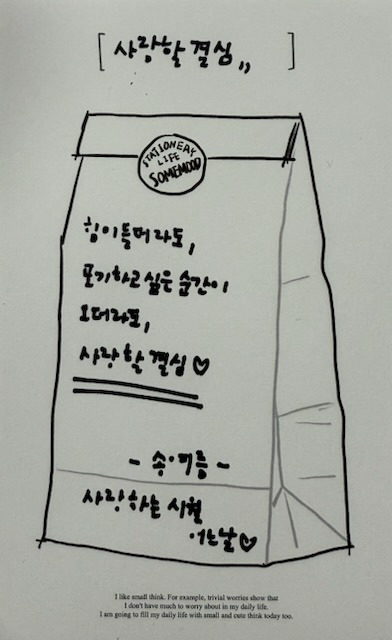 [ 사랑할 결심,, ]
STATIONERY
LIFE
SOMEMOOD
힘이 들더라도,
포기하고 싶은 순간이
오더라도,
사랑할 결심♡
사랑하는 시월
어느날♡
I like small think. For example, trivial worries show that
I don't have much to worry about in my daily life.
I am going to fill my daily life with small and cute think today too.